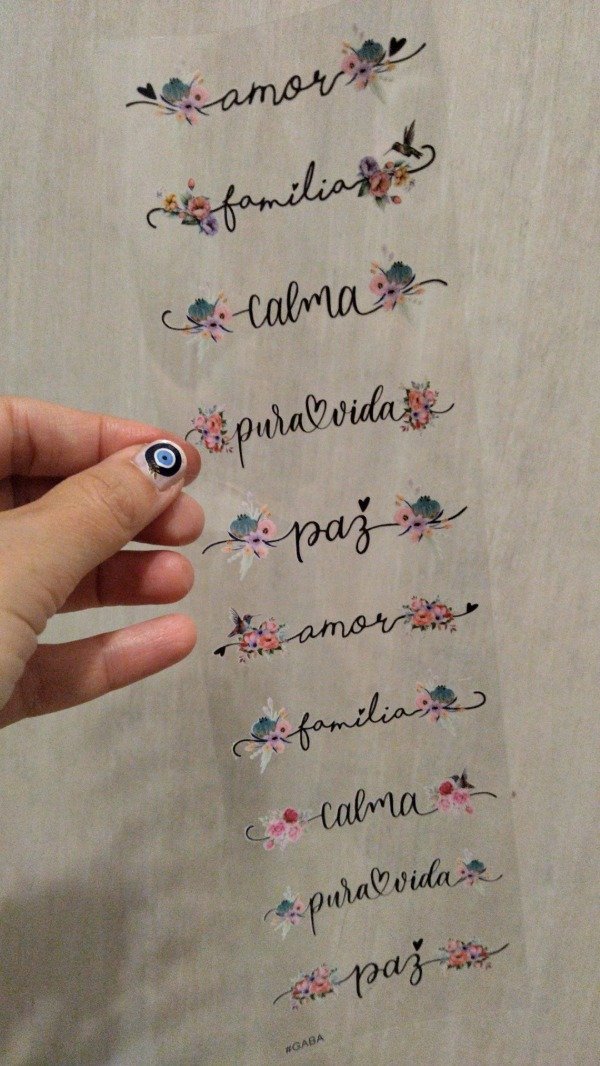 amor
familia
calma
pura vida
paz
amor
familia
calma
pura vida
paz
#GABA